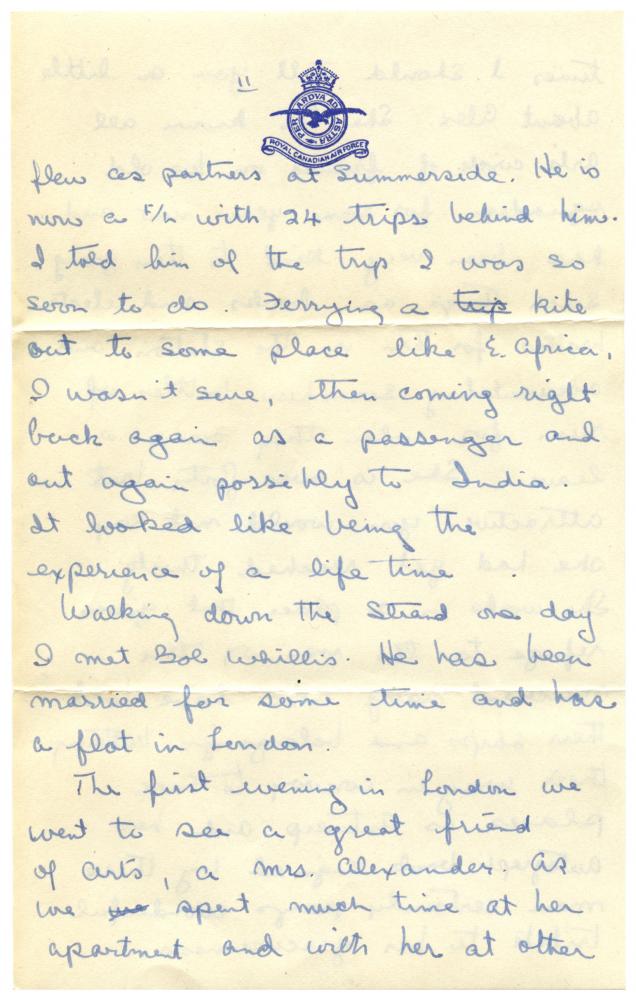 11
PER ARDVA AD ASTRA
ROYAL CANADIAN AIR FORCE
flew as partners at Summerside. He is
now a F/L with 24 trips behind him.
I told him of the trip I was so
soon to do. Ferrying a trip kite
out to some place like E. Africa,
I wasn't sure, then coming right
back again as a passenger and
out again possibly to India.
It looked like being the
experience of a life time.
Walking down the Strand one day
I met Bob Whillis. He has been
married for some time and has
a flat in London.
The first evening in London we
went to see a great friend
of Arts, a Mrs. Alexander. As
we spent much time at her
apartment and with her at other